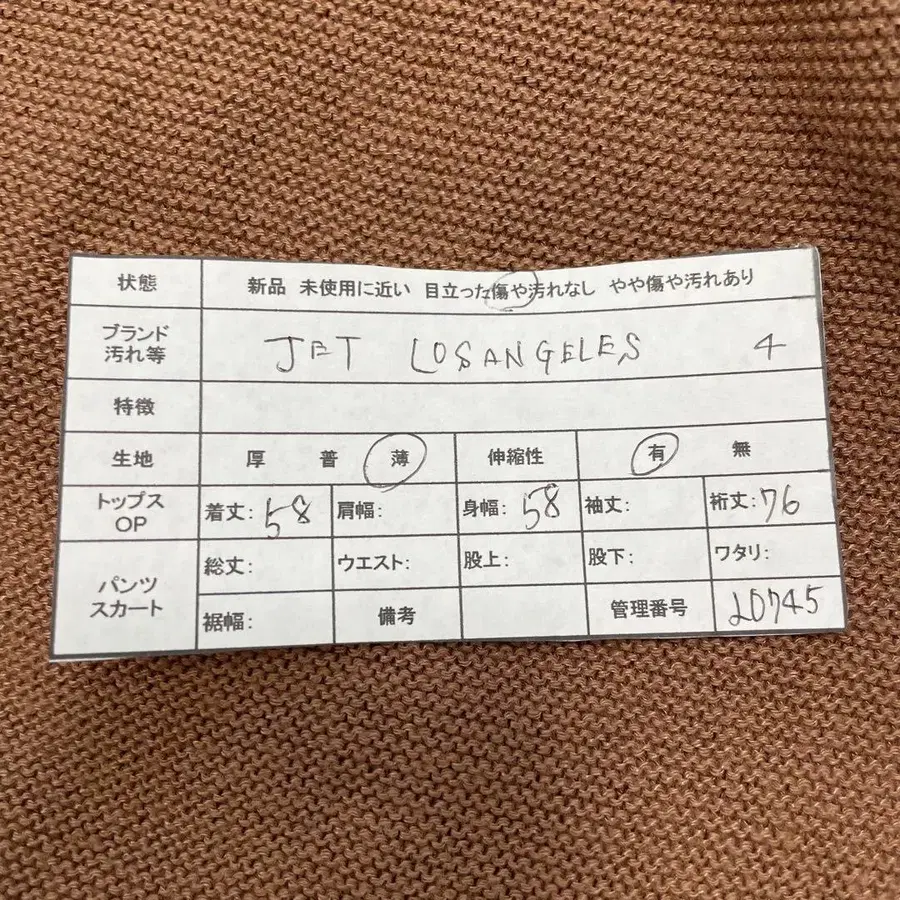 状態 新品 未使用に近い 目立った傷や汚れなし やや傷や汚れあり
ブランド
汚れ等 JET LOSANGELES 4
特徴
生地 厚 普 薄 伸縮性 有 無
トップス
OP 着丈: 58 肩幅: 身幅: 58 袖丈: 裄丈: 76
パンツ
スカート 総丈: ウエスト: 股上: 股下: ワタリ:
裾幅: 備考 管理番号 20745